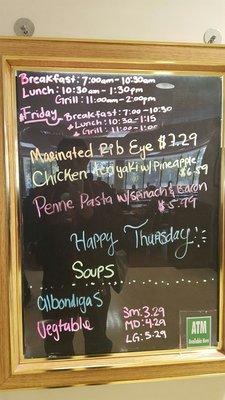 Breakfast: 7:00am-10:30am
Lunch: 10:30am-1:30pm
Grill: 11:00am-2:00pm
Friday
Breakfast: 7:00-10:30
Lunch: 10:30-1:15
Grill: 11:00-1:00
Marinated Rib Eye $7.29
Chicken Teriyaki w/Pineapple
$6.59
Penne Pasta w/Spinach & Bacon
$5.99
Happy Thursday!
Soups
Albondigas
Vegtable
Sm: 3.29
MD: 4.29
LG: 5.29
ATM
Available Here